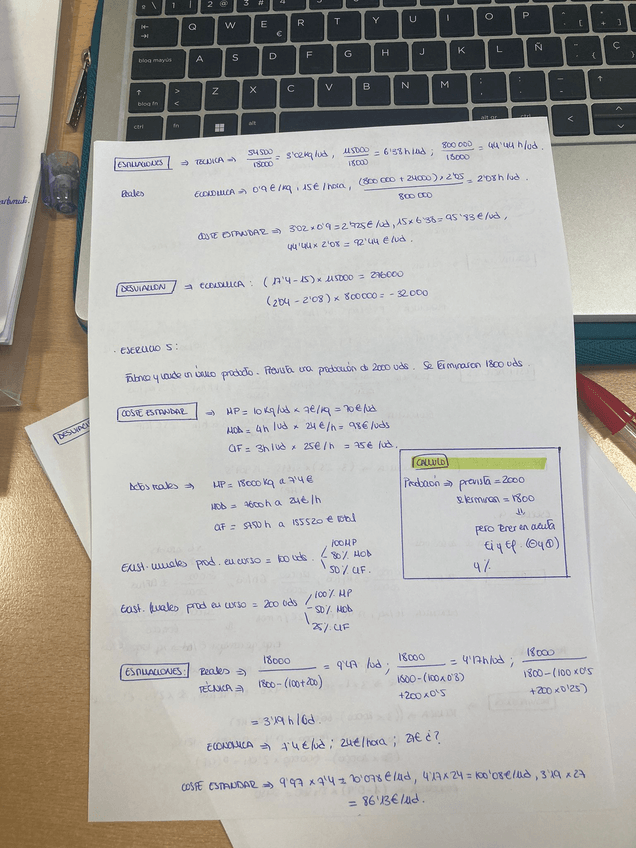 ESTIMACIONES ⇒ TÉCNICA ⇒ 54500/18000 = 3'02 kg/ud, 115000/18000 = 6'38 h/ud ; 800 000/18000 = 44'44 h/ud.
Reales ECONOMICA ⇒ 0'9 €/kg ; 15 €/hora, (800 000 + 24000) × 2'05/800 000 = 2'08 h/ud.
COSTE ESTANDAR ⇒ 3'02 × 0'9 = 2'725 €/ud, 15 × 6'38 = 95'83 €/ud,
44'44 × 2'08 = 92'44 €/ud.
DESVIACION ⇒ ECONOMICA : (17'4 - 15) × 115000 = 276000
(2'04 - 2'08) × 800000 = - 32 000
· EJERCICIO 5 :
Fabrica y vende un único producto. Prevista una producción de 2000 uds. Se terminaron 1800 uds
COSTE ESTANDAR ⇒ MP = 10 kg/ud × 7€/kg = 70 €/ud
MOD = 4h/ud × 24 €/h = 98€/uds
CIF = 3h/ud × 25€/h = 75€/ud.
CALCULO
Producción ⇒ prevista = 2000
Se terminan = 1800
⇓
pero tener en cuenta
Ei y Ef. (⊖ y ⊕)
y %
Datos reales ⇒ MP = 18000 kg a 7'4 €
MOD = 7600h a 24€/h
CIF = 5750 h a 155520 € total
Exist. iniciales prod. en curso = 100 uds. 100% MP
80% MOD
50% CIF.
Exist. finales prod en curso = 200 uds 100% MP
50% MOD
25% CIF
ESTIMACIONES: Reales ⇒ 18000/1800-(100+200) = 9'47 /ud ; 18000/1800-(100×0'8)+200×0'5 = 4'17h/ud ; 18000/1800-(100×0'5+200×0'25)
TÉCNICA ⇒
= 3'19 h/ud.
ECONOMICA ⇒ 7'4 €/ud ; 24€/hora ; 27€ ¿?
COSTE ESTANDAR ⇒ 9'47 × 7'4 = 70'078 €/ud, 4'17 × 24 = 100'08€/ud, 3'19 × 27
= 86'13€/ud.